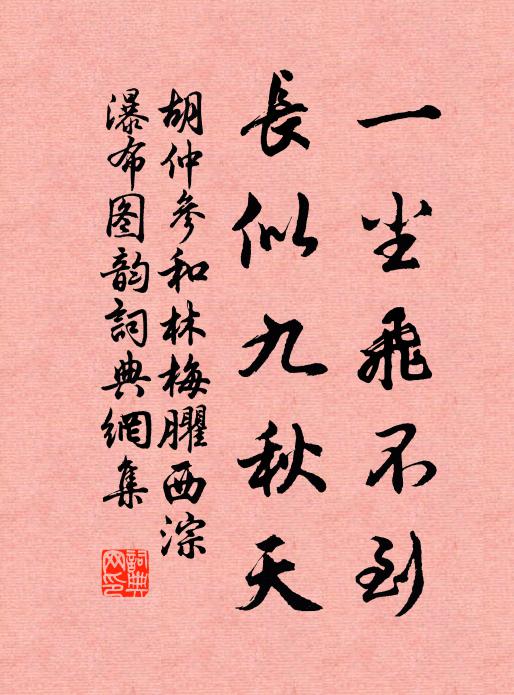 一尘飛不到
長似九秋天
胡仲參和林梅臞西淙
瀑布图韵詞典網集
詞典网印